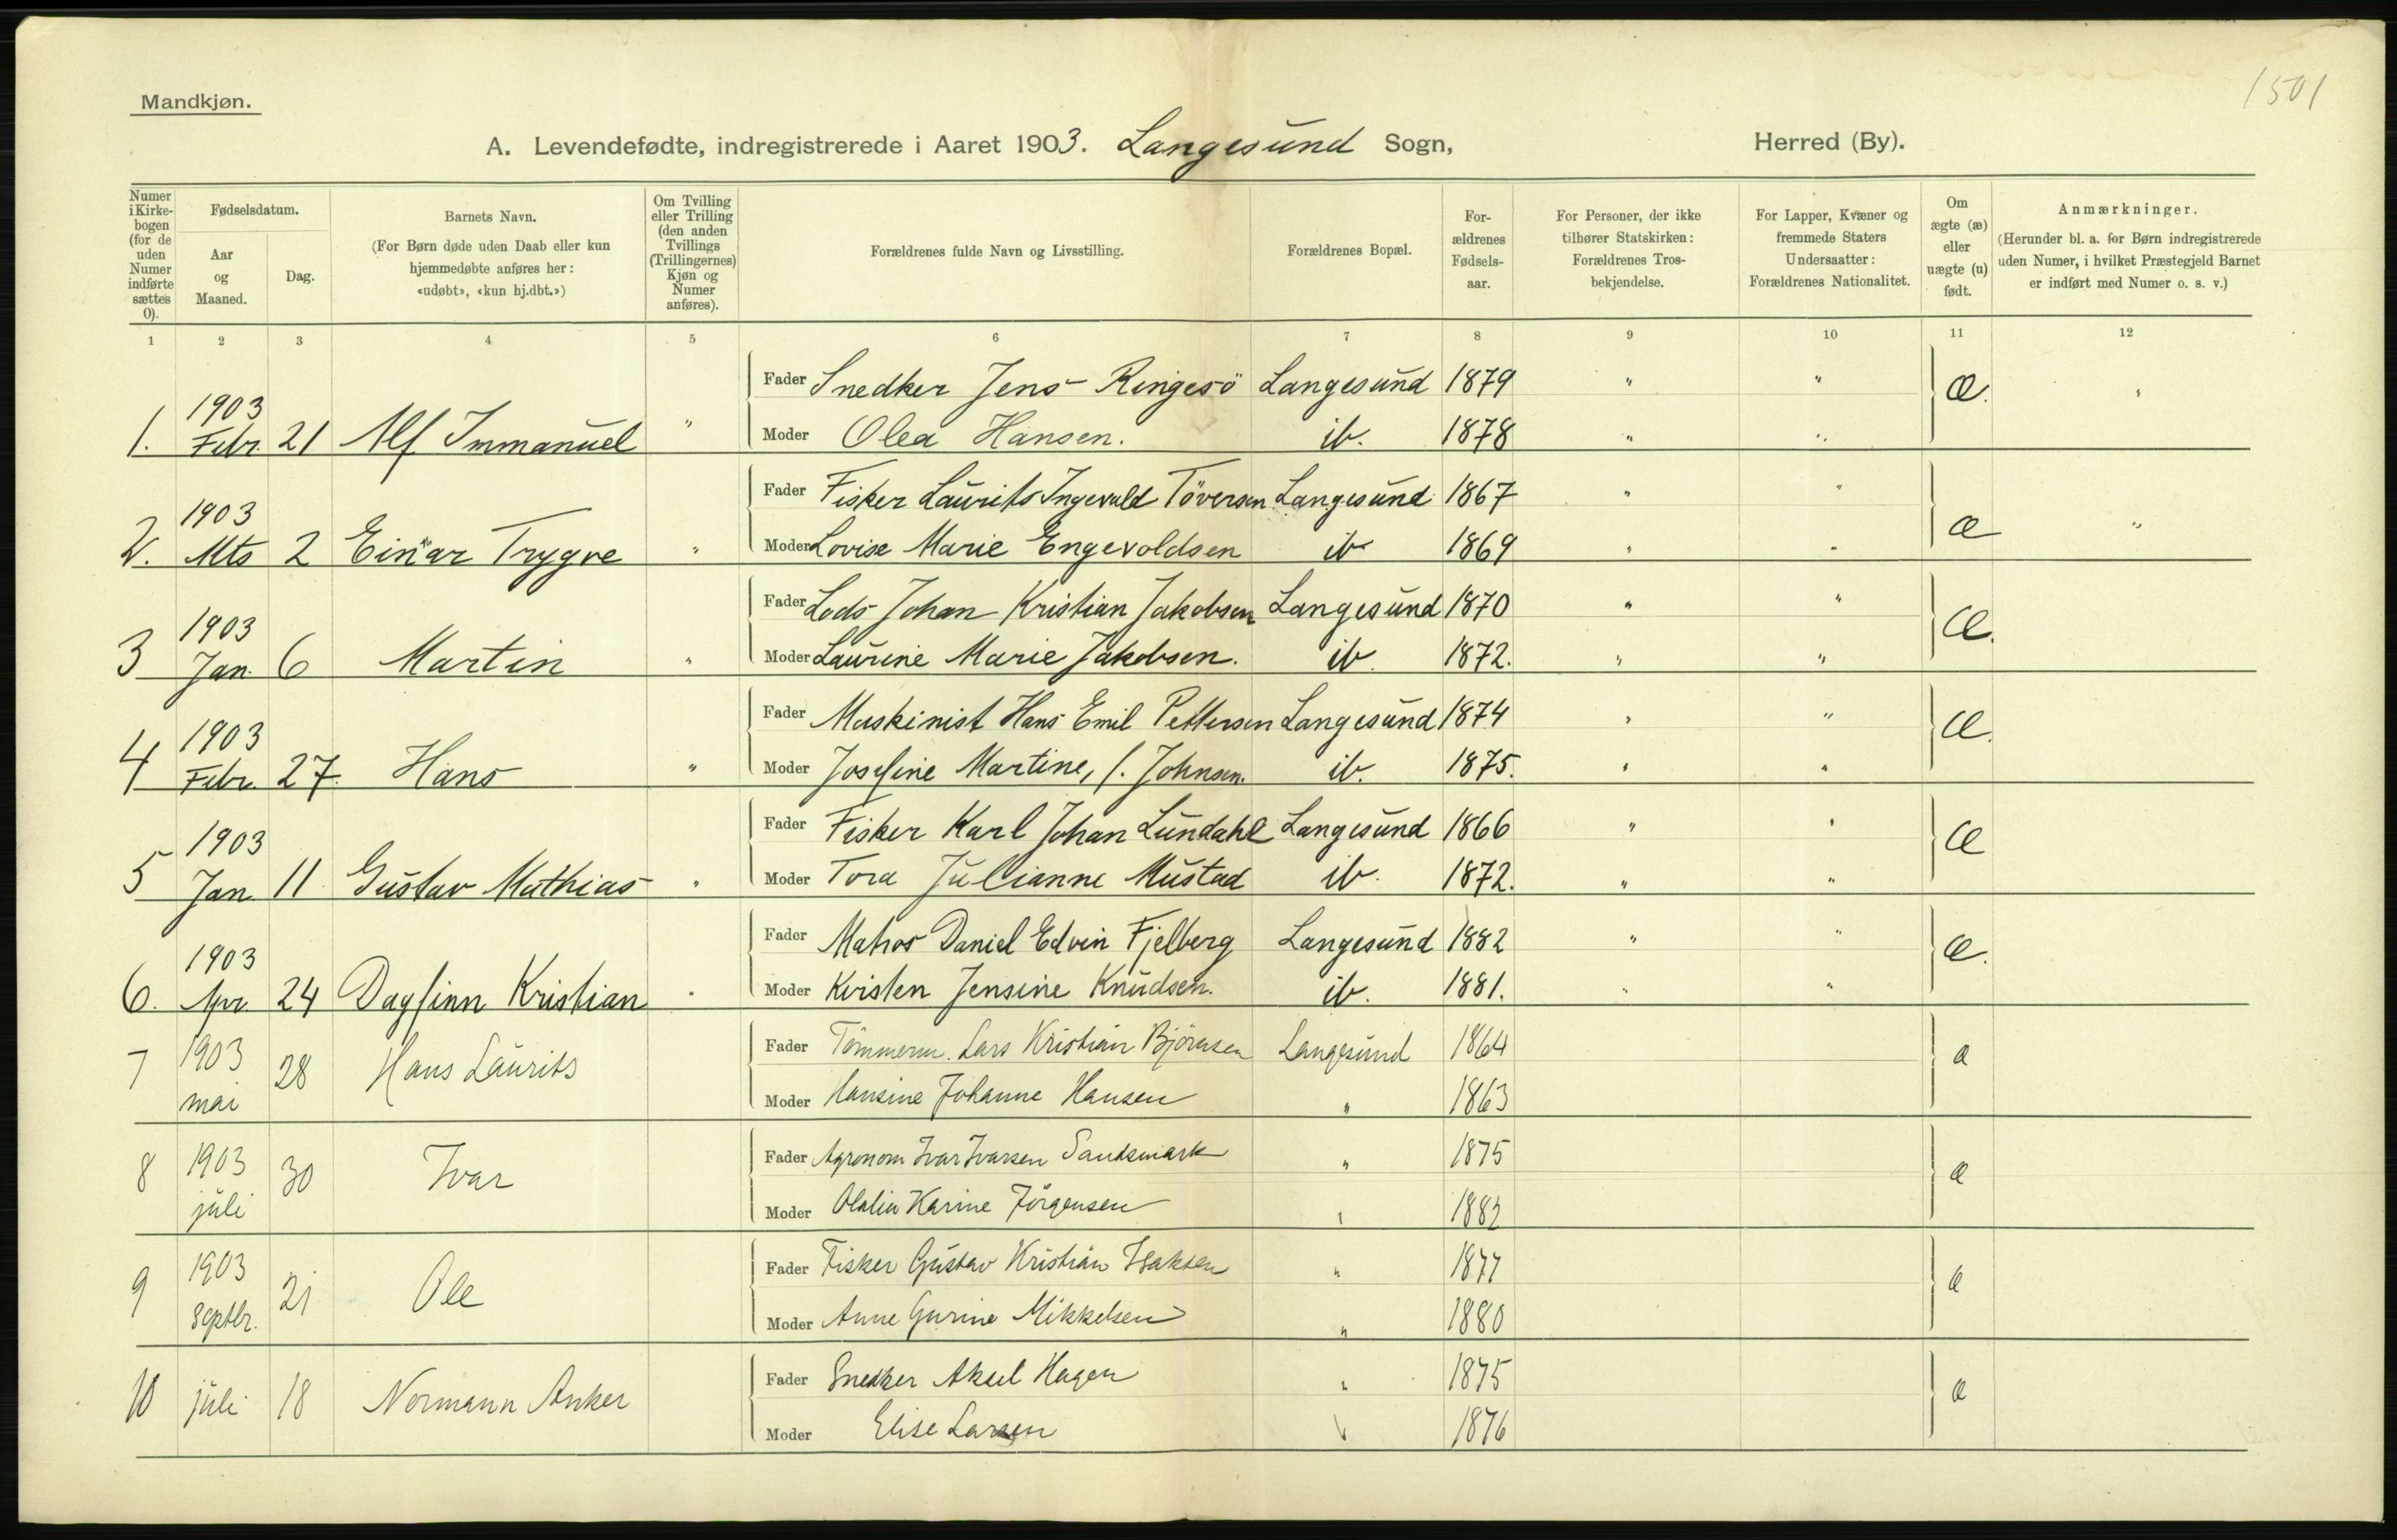 1501
Mandkjøn.
A. Levendefødte, indregistrerede i Aaret 1903. Langesund Sogn, Herred (By).
Numer i Kirke-bogen (for de uden Numer indførte sættes 0).
Fødselsdatum.
Aar og Maaned.
Dag.
Barnets Navn.
(For Børn døde uden Daab eller kun hjemmedøbte anføres her: «udøbt», «kun hj.dbt.»)
Om Tvilling eller Trilling (den anden Tvillings (Trillingernes) Kjøn og Numer anføres).
Forældrenes fulde Navn og Livsstilling.
Forældrenes Bopæl.
For-ældrenes Fødsels-aar.
For Personer, der ikke tilhører Statskirken: Forældrenes Tros-bekjendelse.
For Lapper, Kvæner og fremmede Staters Undersaatter: Forældrenes Nationalitet.
Om ægte (æ) eller uægte (u) født.
Anmærkninger.
(Herunder bl. a. for Børn indregistrerede uden Numer, i hvilket Præstegjeld Barnet er indført med Numer o. s. v.)
1 2 3 4 5 6 7 8 9 10 11 12
Fader Snedker Jens Ringesö Langesund 1879 " " æ. "
1. 1903 Febr. 21 Alf Immanuel " Moder Olea Hansen. ib. 1878 " "
Fader Fisker Laurits Ingevald Töversen Langesund 1867 " " æ "
2. 1903 Mts 2 Einar Trygve " Moder Lovise Marie Engevoldsen ib 1869 " "
Fader Lods Johan Kristian Jakobsen Langesund 1870 " " æ.
3 1903 Jan. 6 Martin " Moder Laurine Marie Jakobsen. ib. 1872. " "
Fader Maskinist Hans Emil Pettersen Langesund 1874 " " æ.
4 1903 Febr. 27. Hans " Moder Josefine Martine, f. Johnsen. ib. 1875. " "
Fader Fisker Karl Johan Lundahl Langesund 1866 " " æ
5 1903 Jan. 11 Gustav Mathias " Moder Tora Julianne Mustad ib. 1872. " "
Fader Matros Daniel Edvin Fjelberg Langesund 1882 " " æ.
6. 1903 Apr. 24 Dagfinn Kristian " Moder Kirsten Jensine Knudsen. ib. 1881. " "
Fader Tömmerm. Lars Kristian Björnsen Langesund 1864 æ
7 1903 mai 28 Hans Laurits Moder Hansine Johanne Hansen " 1863
Fader Agronom Ivar Ivarsen Sandsmark " 1875 æ
8 1903 juli 30 Ivar Moder Karine Jörgensen " 1883
Fader Fisker Gustav Kristian Isaksen " 1877 æ
9 1903 Septbr. 21 Ole Moder Anne Gurine Mikkelsen " 1880
Fader Snedker Aksel Hagen " 1875 æ
10 juli 18 Normann Anker Moder Elise Larsen " 1876